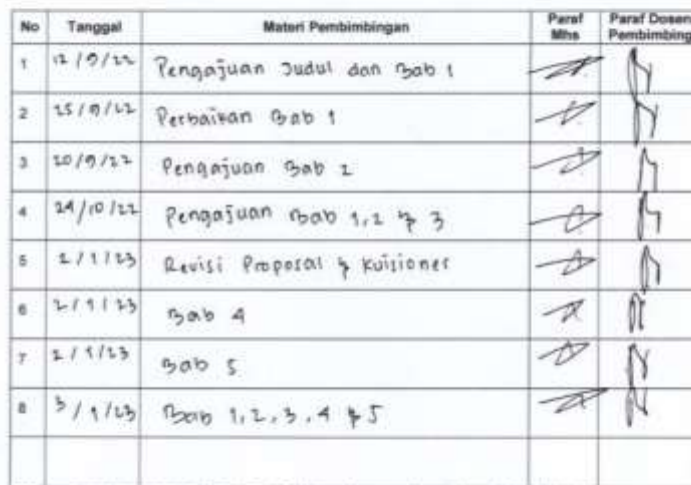 No Tanggal Materi Pembimbingan Paraf Mhs Paraf Dosen Pembimbing
1 12/9/22 Pengajuan Judul dan Bab 1
2 25/9/22 Perbaikan Bab 1
3 20/9/22 Pengajuan Bab 2
4 24/10/22 Pengajuan Bab 1,2 & 3
5 2/1/23 Revisi Proposal & Kuisioner
6 2/1/23 Bab 4
7 2/1/23 Bab 5
8 3/1/23 Bab 1,2,3,4 & 5